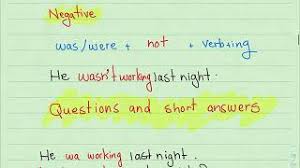 Negative
was/were + not + verb+ing
He wasn't working last night.
Questions and short answers
He wa working last night.